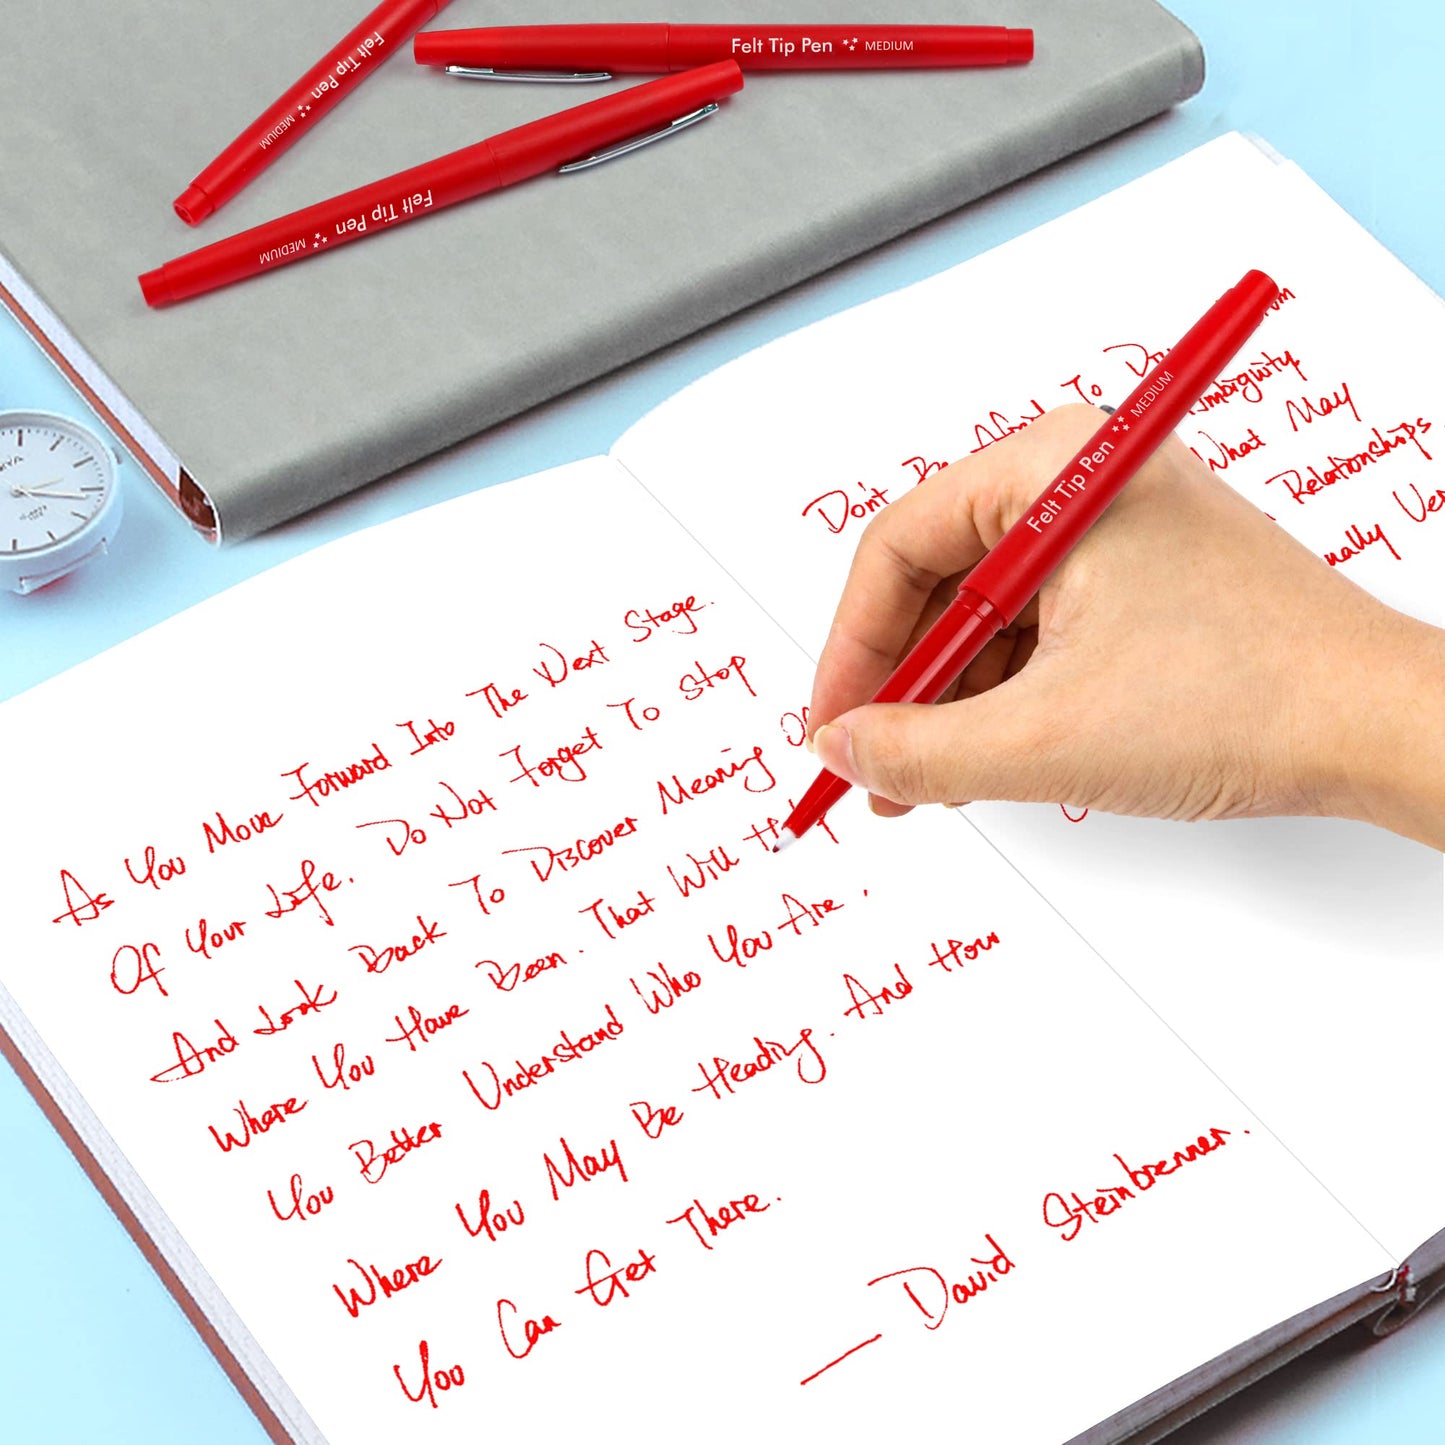 Felt Tip Pen MEDIUM
Felt Tip Pen MEDIUM
Felt Tip Pen MEDIUM
Felt Tip Pen MEDIUM
As You Move Forward Into The Next Stage.
Of Your Life. Do Not Forget To Stop
And Look Back To Discover Meaning Of
Where You Have Been. That Will Help
You Better Understand Who You Are,
Where You May Be Heading. And How
You Can Get There.
— David Steinbrenner.
Don't Be Afraid To
Ambiguity
What May
Relationships
Ver